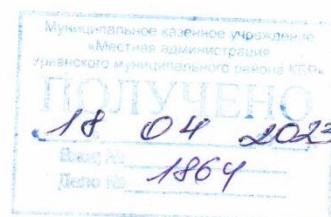 Муниципальное казенное учреждение
«Местная администрация
Урванского муниципального района КБР»
ПОЛУЧЕНО
18 04 2023
Вход №
1864
Дело №